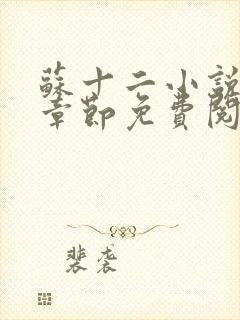 蘇十二小說
章節免費閱
裴袭